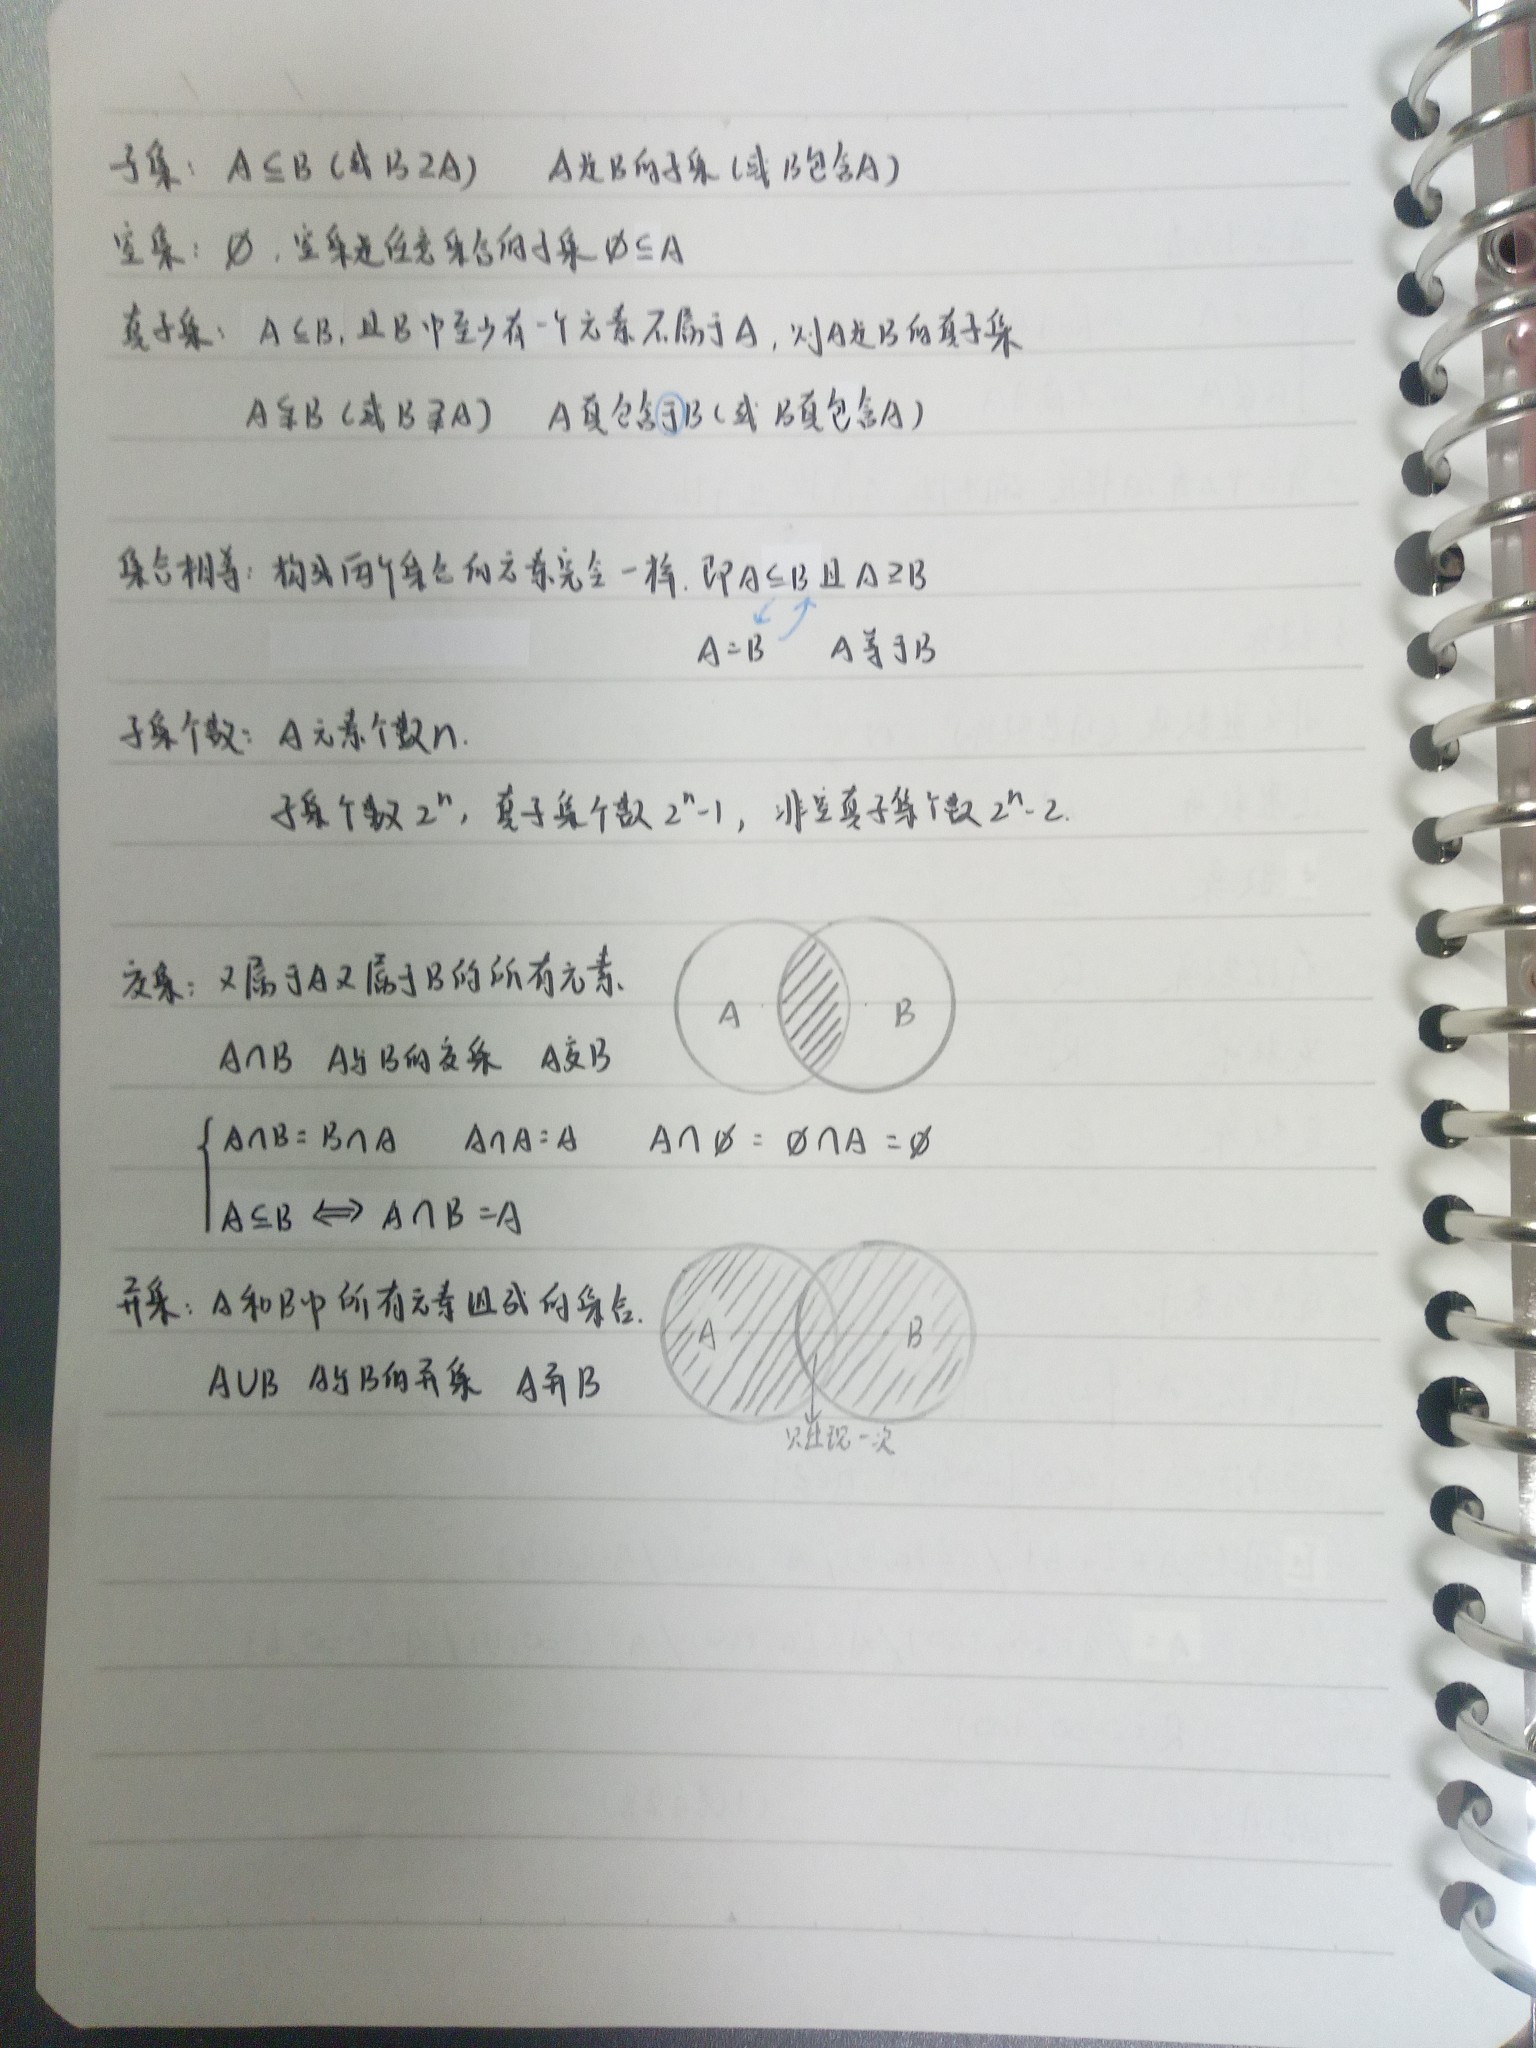 子集： A⊆B（或 B⊇A） A是B的子集（或 B包含A）
空集： ∅ . 空集是任意集合的子集 ∅⊆A
真子集： A⊆B, 且B中至少有一个元素不属于A, 则A是B的真子集
A⫋B（或 B⫌A） A真包含于B（或 B真包含A）
集合相等: 构成两个集合的元素完全一样. 即A⊆B且A⊇B
A=B A等于B
子集个数: A元素个数n.
子集个数2ⁿ, 真子集个数2ⁿ-1, 非空真子集个数2ⁿ-2.
交集: 又属于A又属于B的所有元素.
A∩B A与B的交集 A交B
A B
A∩B=B∩A A∩A=A A∩∅=∅∩A=∅
A⊆B ⟺ A∩B=A
并集: A和B中所有元素组成的集合.
A∪B A与B的并集 A并B
A B
只出现一次